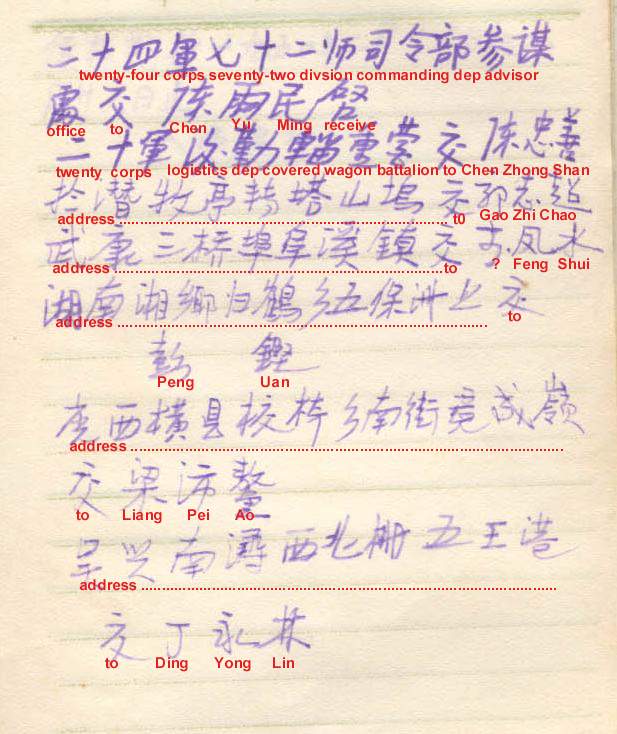 二十四軍七十二师司令部参谋
twenty-four corps seventy-two divsion commanding dep advisor
處交 陈雨民啓
office to Chen Yu Ming receive
二十軍後勤輜重营交陈忠善
twenty corps logistics dep covered wagon battalion to Chen Zhong Shan
潜牧亭塔山塢交 志超
address to Gao Zhi Chao
武康三桥埠阜溪鎮交 凤水
address to ? Feng Shui
湖南湘鄉白鶴乡五保洲上 交
address to
彭 鏗
Peng Uan
西横县校椅乡南街竟成嶺
address
交梁沛鳌
to Liang Pei Ao
吴兴南潯西北栅五王港
address
交丁永林
to Ding Yong Lin